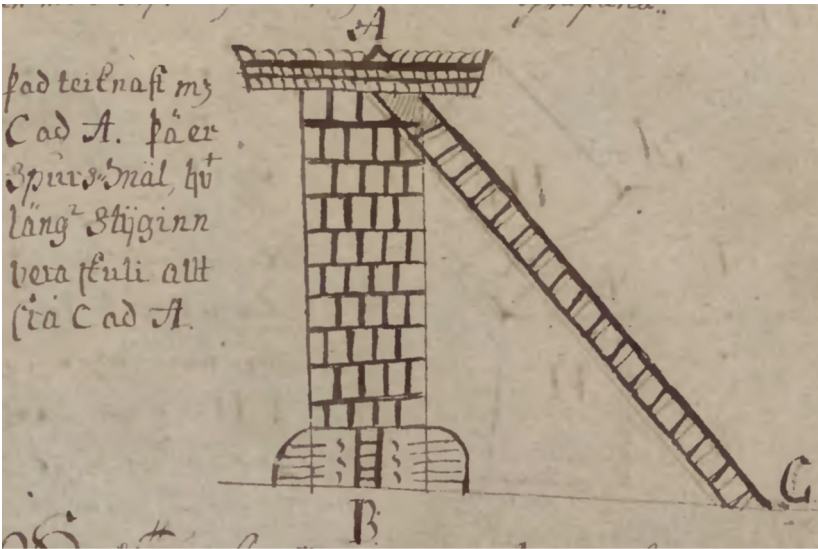 A
þad teiknast mz
C ad A. Þä er
Spurs-mäl, hv
läng Stÿginn
vera skuli allt
frä C ad A.
C
B